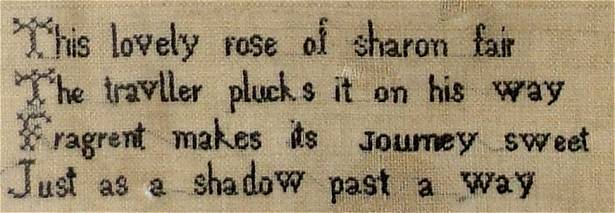 This lovely rose of sharon fair
The travller plucks it on his way
Fragrent makes its Journey sweet
Just as a shadow past a way